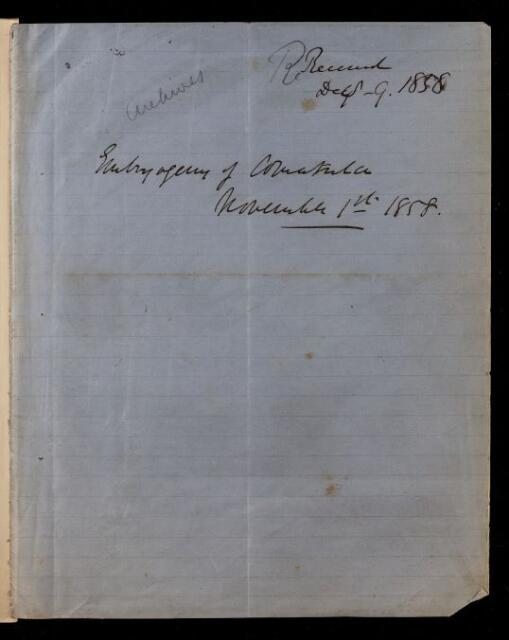 Archives
R. Received
Dec. 9. 1858
Embryogeny of Comatula
November 1st 1858.